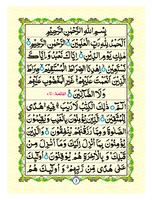 بِسْمِ اللهِ الرَّحْمٰنِ الرَّحِيْمِ
اَلْحَمْدُ لِلّٰهِ رَبِّ الْعٰلَمِيْنَ الرَّحْمٰنِ الرَّحِيْمِ
مٰلِكِ يَوْمِ الدِّيْنِ اِيَّاكَ نَعْبُدُ وَاِيَّاكَ
نَسْتَعِيْنُ اِهْدِنَا الصِّرَاطَ الْمُسْتَقِيْمَ صِرَاطَ
الَّذِيْنَ اَنْعَمْتَ عَلَيْهِمْ غَيْرِ الْمَغْضُوْبِ عَلَيْهِمْ
وَلَا الضَّآلِّيْنَ
الٓمّٓ ذٰلِكَ الْكِتٰبُ لَا رَيْبَ فِيْهِ هُدًى
لِّلْمُتَّقِيْنَ الَّذِيْنَ يُؤْمِنُوْنَ بِالْغَيْبِ وَيُقِيْمُوْنَ
الصَّلٰوةَ وَمِمَّا رَزَقْنٰهُمْ يُنْفِقُوْنَ وَالَّذِيْنَ يُؤْمِنُوْنَ
بِمَآ اُنْزِلَ اِلَيْكَ وَمَآ اُنْزِلَ مِنْ قَبْلِكَ
وَبِالْاٰخِرَةِ هُمْ يُوْقِنُوْنَ اُولٰٓئِكَ عَلٰى
هُدًى مِّنْ رَّبِّهِمْ وَاُولٰٓئِكَ هُمُ